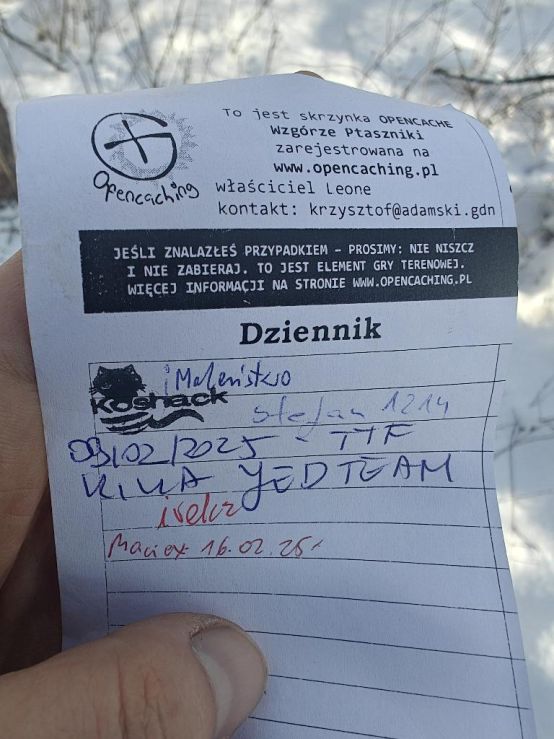 To jest skrzynka OPENCACHE
Wzgórze Ptaszniki
zarejestrowana na
www.opencaching.pl
Opencaching
właściciel Leone
kontakt: krzysztof@adamski.gdn
JEŚLI ZNALAZŁEŚ PRZYPADKIEM – PROSIMY: NIE NISZCZ
I NIE ZABIERAJ. TO JEST ELEMENT GRY TERENOWEJ.
WIĘCEJ INFORMACJI NA STRONIE WWW.OPENCACHING.PL
Dziennik
i Maleństwo
Koshack
stefan 1214
09/02/2025 - TTF
KIKA YEDTEAM
Maciex 16.02.25r